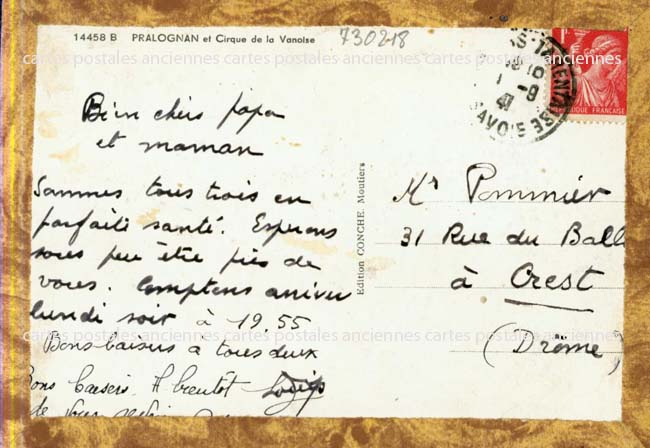 14458 B PRALOGNAN et Cirque de la Vanoise
730218
cartes postales anciennes cartes postales anciennes cartes postales anciennes
Bien chers papa
et maman
Sommes tous trois en
parfaite santé. Esperons
sous peu être près de
vous. Comptons arriver
lundi soir à 19.55
Bons baisers a tous deux
Bons baisers. A bientôt
de
Edition CONCHE. Moutiers
1F
RÉPUBLIQUE FRANÇAISE
TARENTAISE
1 -9
41
SAVOIE
Mr Pommier
31 Rue du Ball
à Crest
(Drôme)
cartes postales anciennes cartes postales anciennes cartes postales anciennes